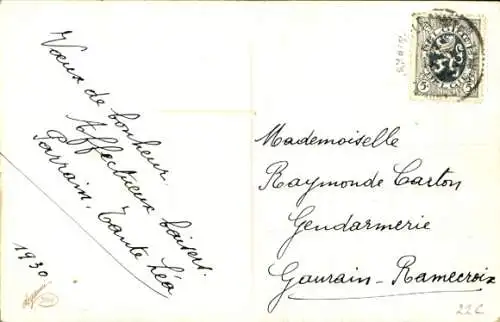 Voeux de bonheur.
Affectueux baisers.
Parrain, Tante Léa
1930
BELGIQUE
5
5
BELGIE
Mademoiselle
Raymonde Carton
Gendarmerie
Gaurain-Ramecroix
22C